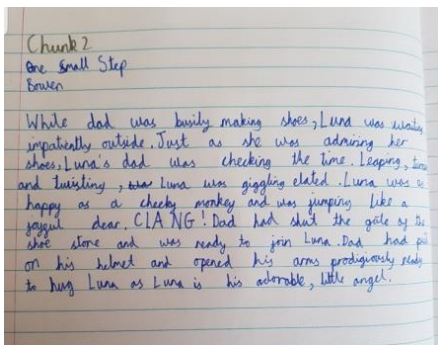 Chunk 2
One Small Step
Bowen
While dad was busily making shoes, Luna was waiting
impatiently outside. Just as she was admiring her
shoes, Luna's dad was checking the time. Leaping,
and twisting, Luna was giggling elated. Luna was as
happy as a cheeky monkey and was jumping like a
joyful dear. CLANG! Dad had shut the gate of the
shoe store and was ready to join Luna. Dad had put
on his helmet and opened his arms prodigiously ready
to hug Luna as Luna is his adorable, little angel.